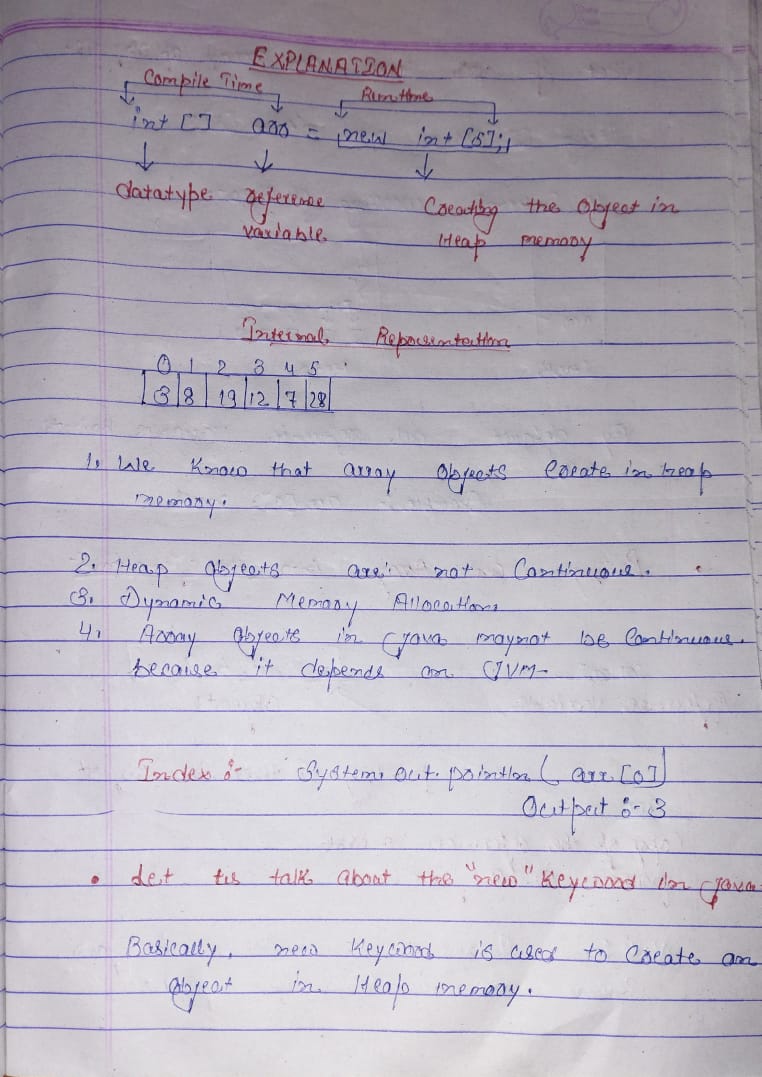 EXPLANATION
Compile Time Runtime
int [] arr = new int [5];
datatype reference Creating the Object in
variable Heap memory
Internal Representation
0 1 2 3 4 5
3 8 19 12 7 28
1. We Know that array Objects Create in heap
memory.
2. Heap Objects are not Continuous.
3. Dynamic Memory Allocation
4. Array Objects in Java maynot be Continuous.
because it depends on JVM
Index :- System. out. println ( arr [0]
Output :- 3
• Let us talk about the "new" Keyword in Java
Basically, new Keyword is used to Create an
Object in Heap memory.